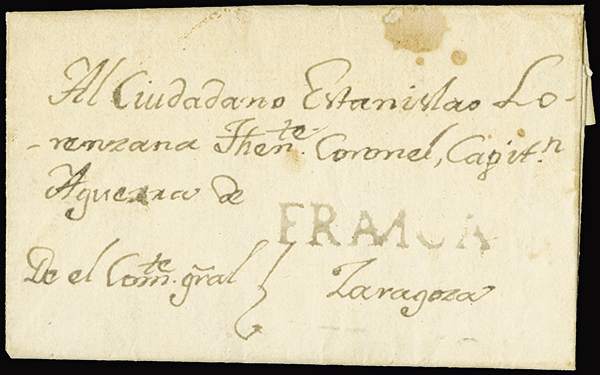 Al Ciudadano Estanislao Lo-
-renzana Then.te Coronel, Capit.n
Aguerra de
FRANCA
De el Com.te gral Zaragoza